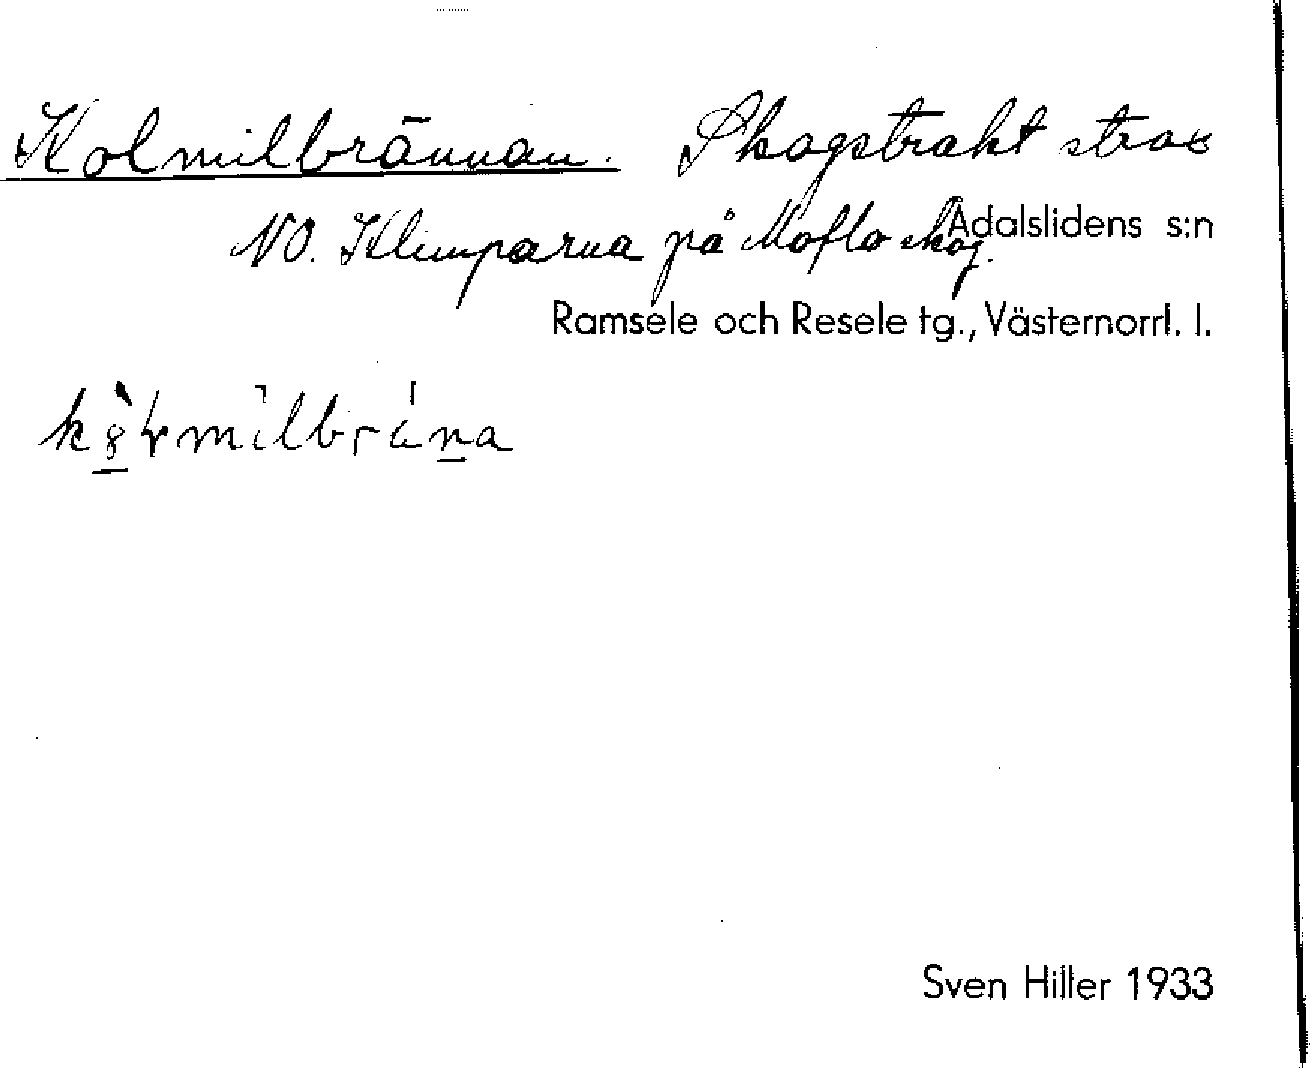 Kolmilbrännan. Skogstrakt strax
NO. Klimparna på Moflo skog.
Ådalslidens s:n
Ramsele och Resele tg., Västernorrl. l.
Sven Hiller 1933